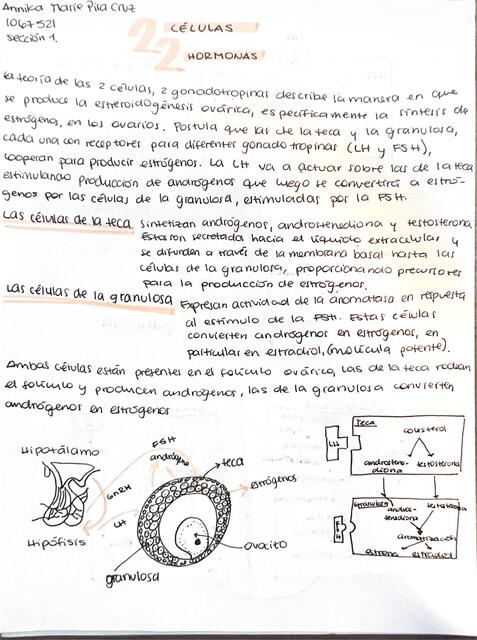 Annika Marie Piña Cruz
1067521
sección 1.
2 CÉLULAS
2 HORMONAS
La teoría de las 2 células, 2 gonadotropinas describe la manera en que
se produce la esteroidogénesis ovárica, específicamente la síntesis de
estrógenos, en los ovarios. Postula que las de la teca y la granulosa,
cada una con receptores para diferentes gonadotropinas (LH y FSH),
cooperan para producir estrógenos. La LH va a actuar sobre las de la teca
estimulando producción de andrógenos que luego se convertirá a estró-
genos por las células de la granulosa, estimuladas por la FSH.
Las células de la teca sintetizan andrógenos, androstenediona y testosterona
Estas son secretada hacia el líquido extracelular y
se difunden a través de la membrana basal hasta las
células de la granulosa, proporcionando precursores
para la producción de estrógenos.
Las células de la granulosa Expresan actividad de la aromatasa en respuesta
al estímulo de la FSH. Estas células
convierten andrógenos en estrógenos, en
particular en estradiol, (molécula potente).
Ambas células están presentes en el folículo ovárico, las de la teca rodean
el folículo y producen andrógenos, las de la granulosa convierten
andrógenos en estrógenos
Hipotálamo
Hipófisis
GnRH
FSH
andrógeno
LH
teca
estrógenos
ovocito
granulosa
TECA
LH
colesterol
androstenediona
testosterona
Granulosa
FSH
androstenediona
testosterona
aromatización
estrona
estradiol